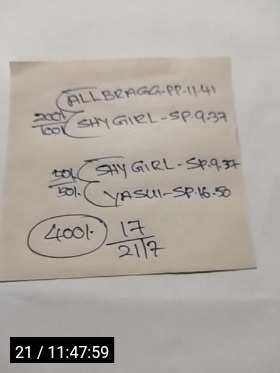 ALLBRAGG-PP-11.41
200/-
100/- SHYGIRL-SP.9.37
50/- SHYGIRL-SP.9.37
50/- YASUI-SP.16.50
400/- 17
21/7
21 / 11:47:59